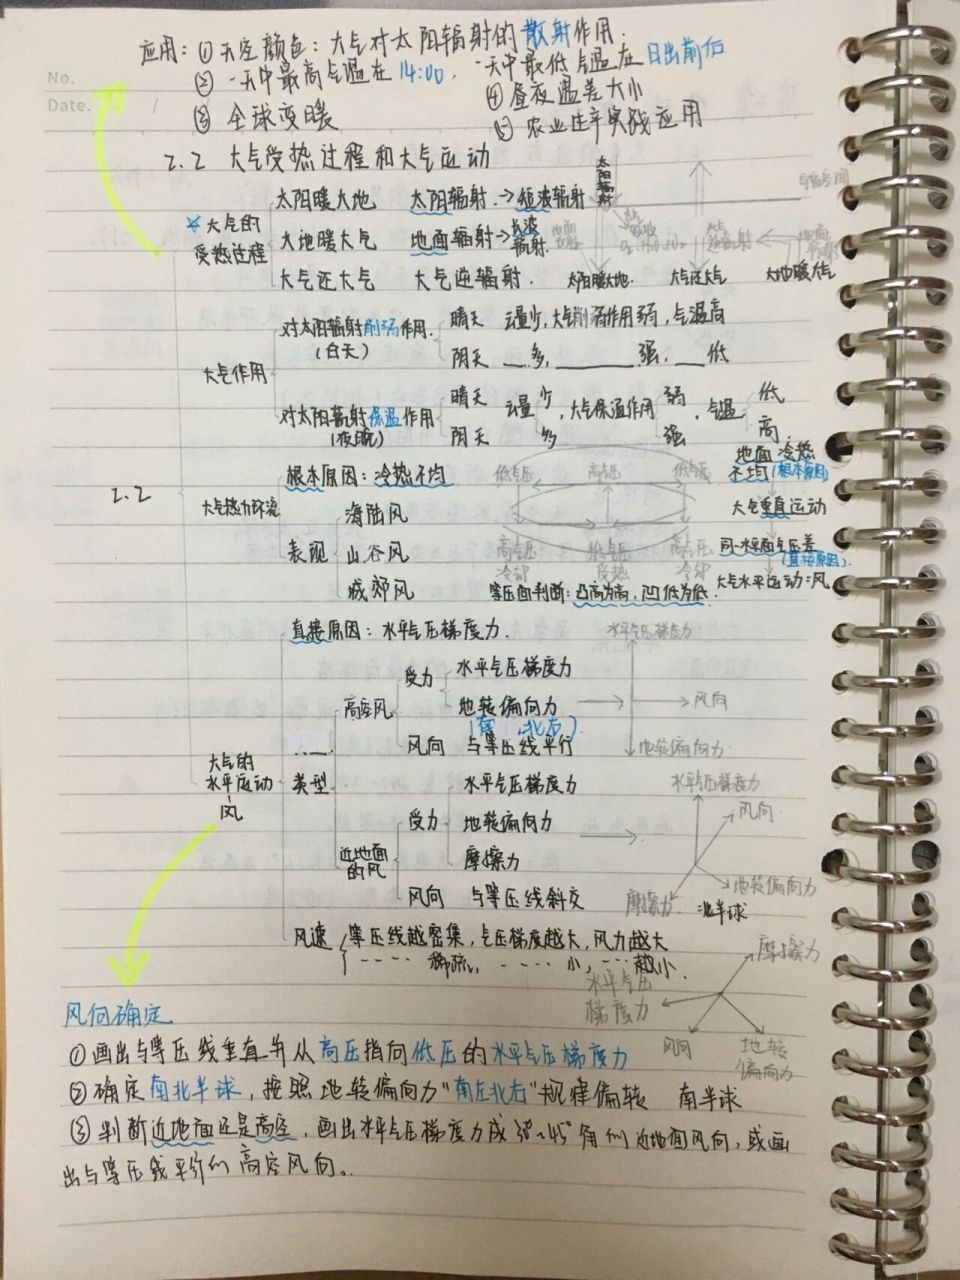 No.
Date.
应用：①天空颜色：大气对太阳辐射的散射作用.
②一天中最高气温在14:00，一天中最低气温在日出前后
③全球变暖 ④昼夜温差大小
⑤农业生产实践应用
2.2 大气受热过程和大气运动
太阳辐射
太阳暖大地 太阳辐射.→短波辐射
*大气的受热过程
大地暖大气 地面辐射→长波辐射.
大气还大气 大气逆辐射.
太阳暖大地. 大气还大气 大地暖大气
对太阳辐射削弱作用.
(白天)
晴天 云量少，大气削弱作用弱，气温高
阴天 __多，____强，__低
大气作用
对太阳辐射保温作用
(夜晚)
晴天 云量少，大气保温作用弱，气温低
阴天 多 强 高.
2.2
大气热力环流
根本原因：冷热不均
低气压 高气压 低气压
地面冷热不均(根本原因)
海陆风
大气垂直运动
表现 山谷风
高气压 低气压 高气压
冷却 受热 冷却
同一水平面气压差
(直接原因).
城郊风
大气水平运动：风
等压面判断：凸高为高，凹低为低.
直接原因：水平气压梯度力.
水平气压梯度力
高空风 受力 水平气压梯度力
地转偏向力
风向
风向 与等压线平行
地转偏向力
大气的水平运动-风
类型
水平气压梯度力
水平气压梯度力
风向
近地面的风 受力 地转偏向力
摩擦力
地转偏向力
风向 与等压线斜交
摩擦力 北半球
风速 等压线越密集，气压梯度越大，风力越大
---- 稀疏， ---- 小，--- 越小.
摩擦力
水平气压梯度力
风向 地转偏向力
风向确定
①画出与等压线垂直并从高压指向低压的水平气压梯度力
②确定南北半球，按照地转偏向力"南左北右"规律偏转 南半球
③判断近地面还是高空，画出水平气压梯度力成30°~45°角的近地面风向，或画
出与等压线平行的高空风向.